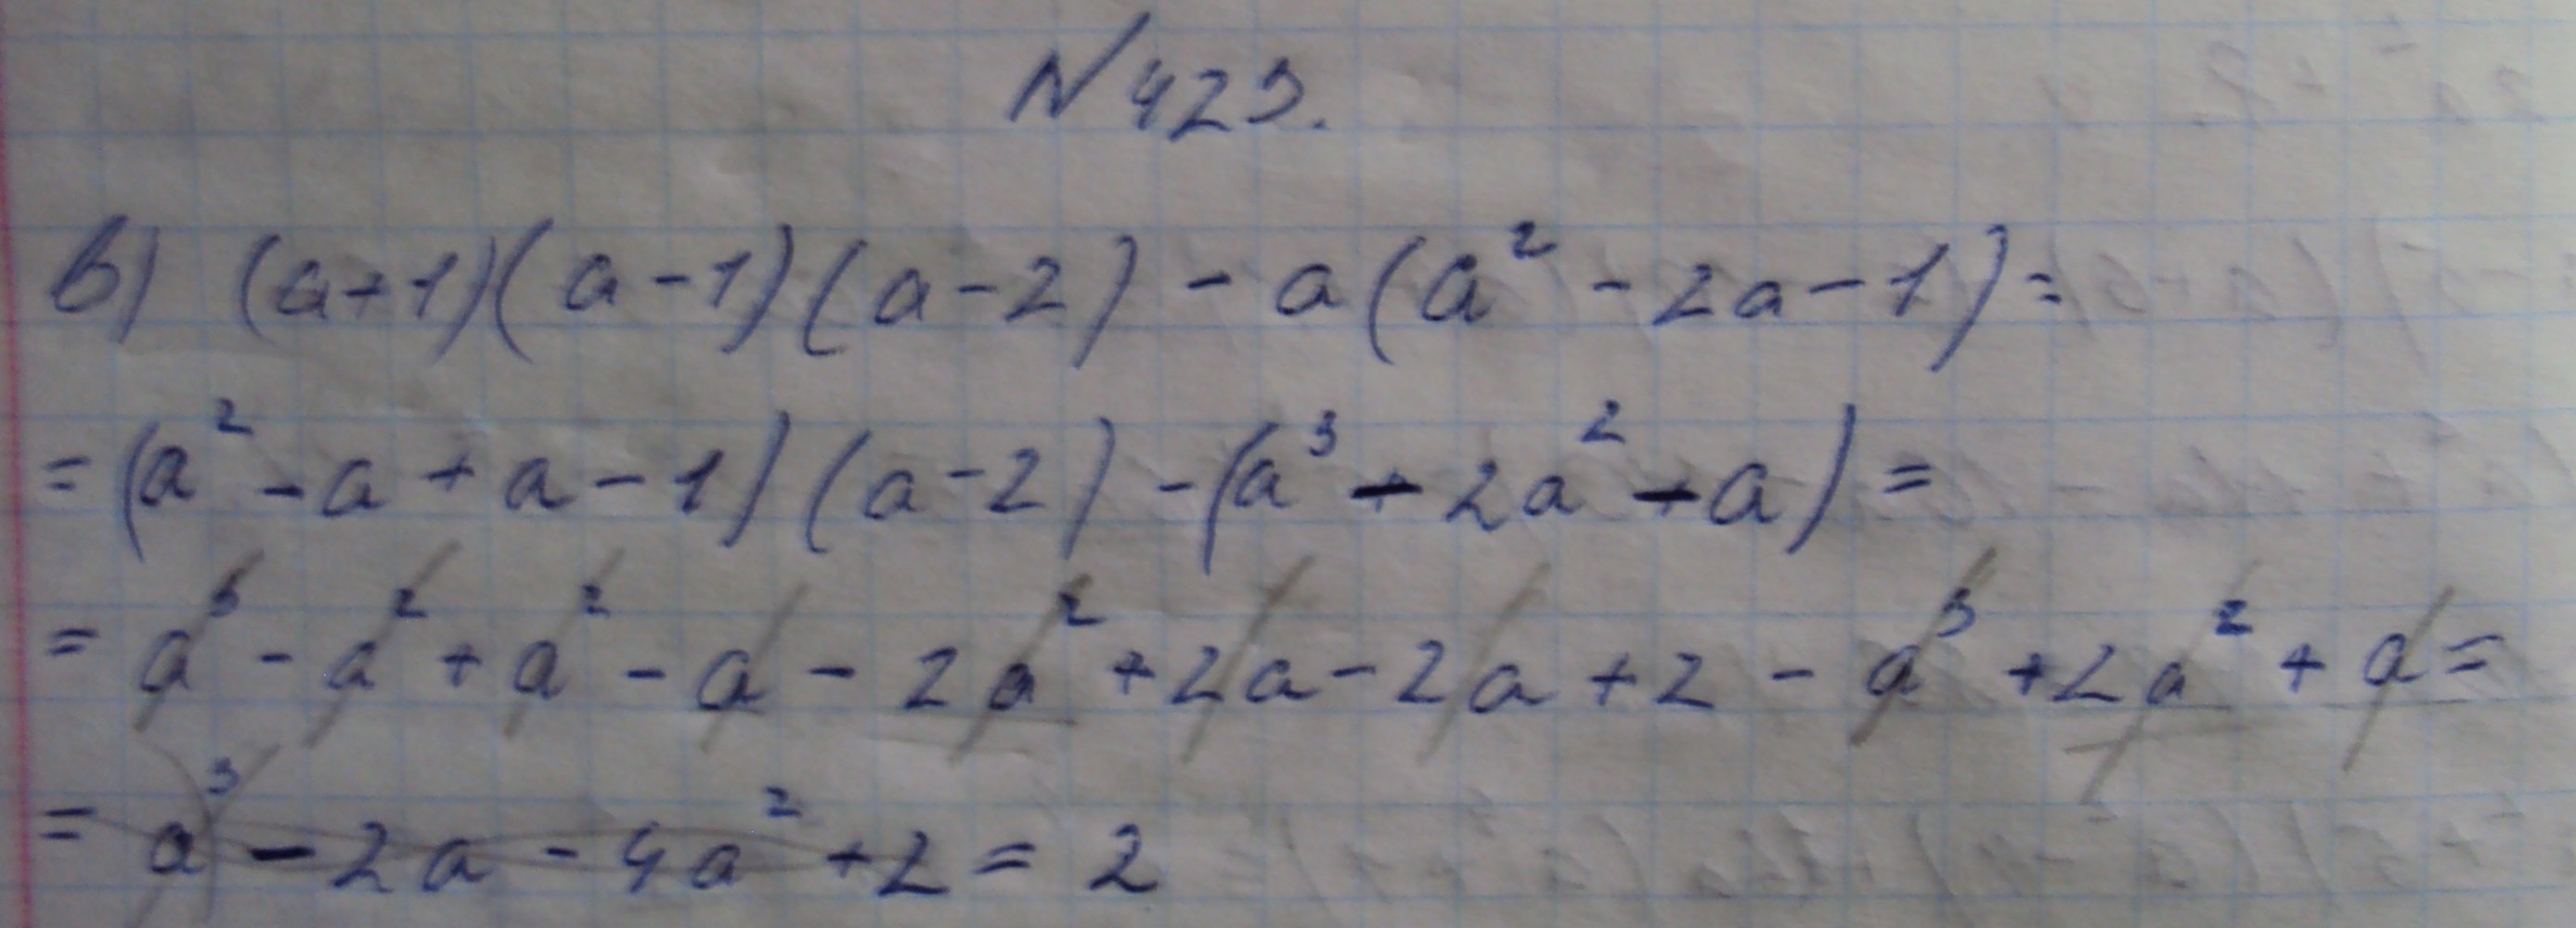 №423.
в) (a+1)(a-1)(a-2) - a(a² - 2a - 1) =
= (a² - a + a - 1)(a - 2) - (a³ - 2a² - a) =
= a³ - a² + a² - a - 2a² + 2a - 2a + 2 - a³ + 2a² + a =
= a³ - 2a - 4a² + 2 = 2